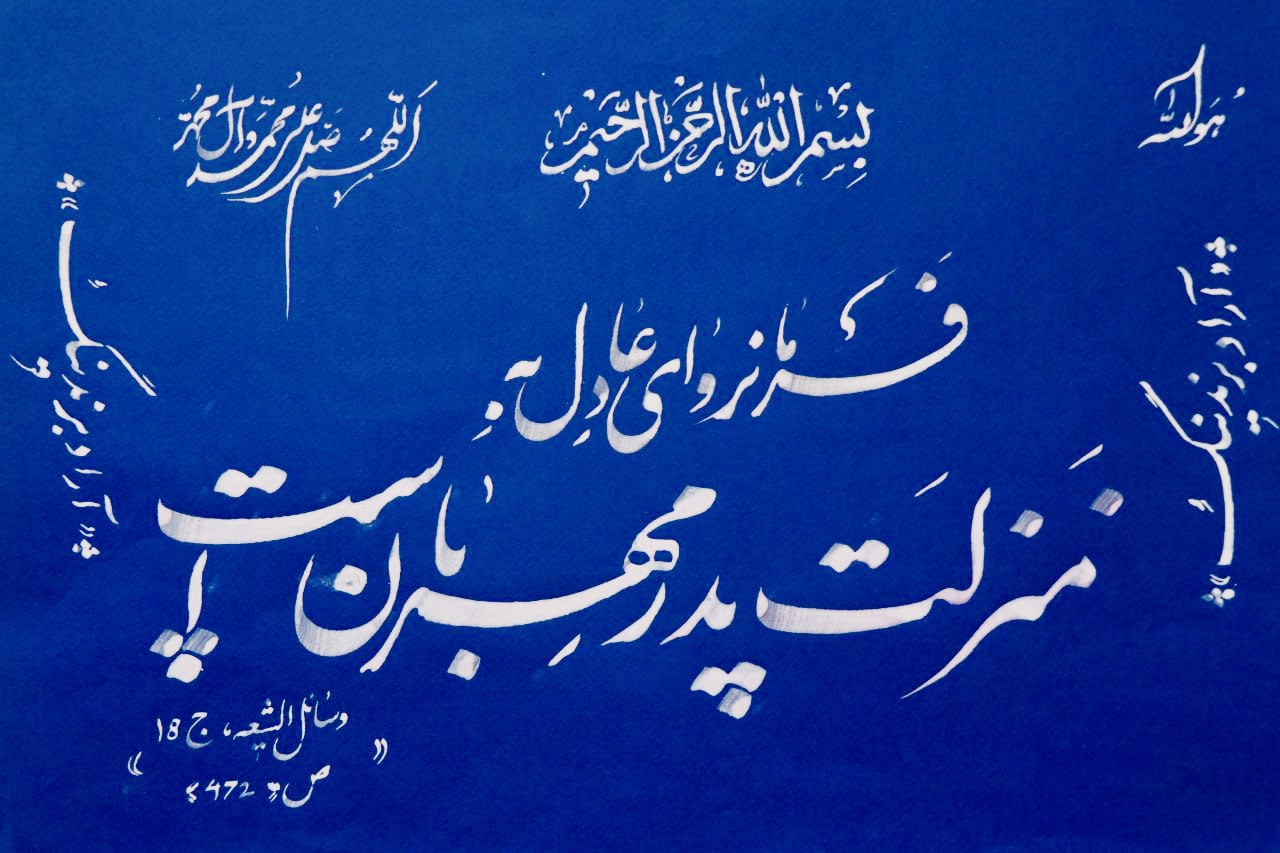 هُوَاللّٰه
بِسْمِ اللهِ الرَّحْمٰنِ الرَّحِیْمِ
اَللّٰهُمَّ صَلِّ عَلٰی مُحَمَّدٍ وَ آلِ مُحَمَّدٍ
فَرمانرُوای عادِل بِه
مَنزلَت پدر مهِربان است
«آراد برندینگ»
«آراد برندینگ»
«وسائل الشیعه، ج 18
ص 472»